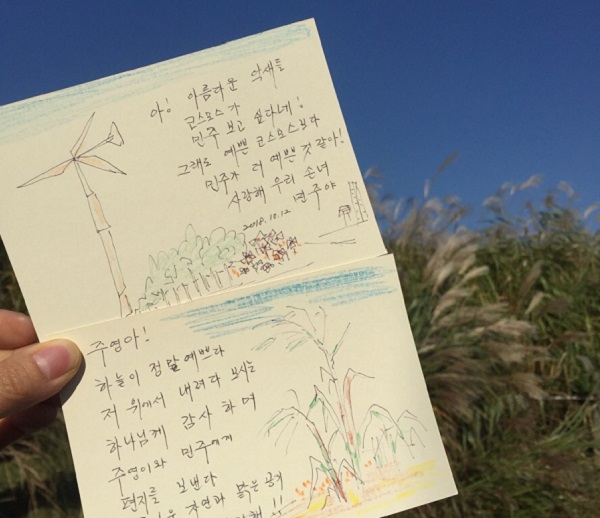 아! 아름다운 억새들
코스모스가
민주 보고 싶다네!
그래도 예쁜 코스모스보다
민주가 더 예쁜것 같아!
사랑해 우리 손녀
민주야
2018.10.12
주영아!
하늘이 정말 예쁘다
저 위에서 내려다 보시는
하나님께 감사하며
주영이와 민주에게
편지를 보낸다
자연과 맑은 공기